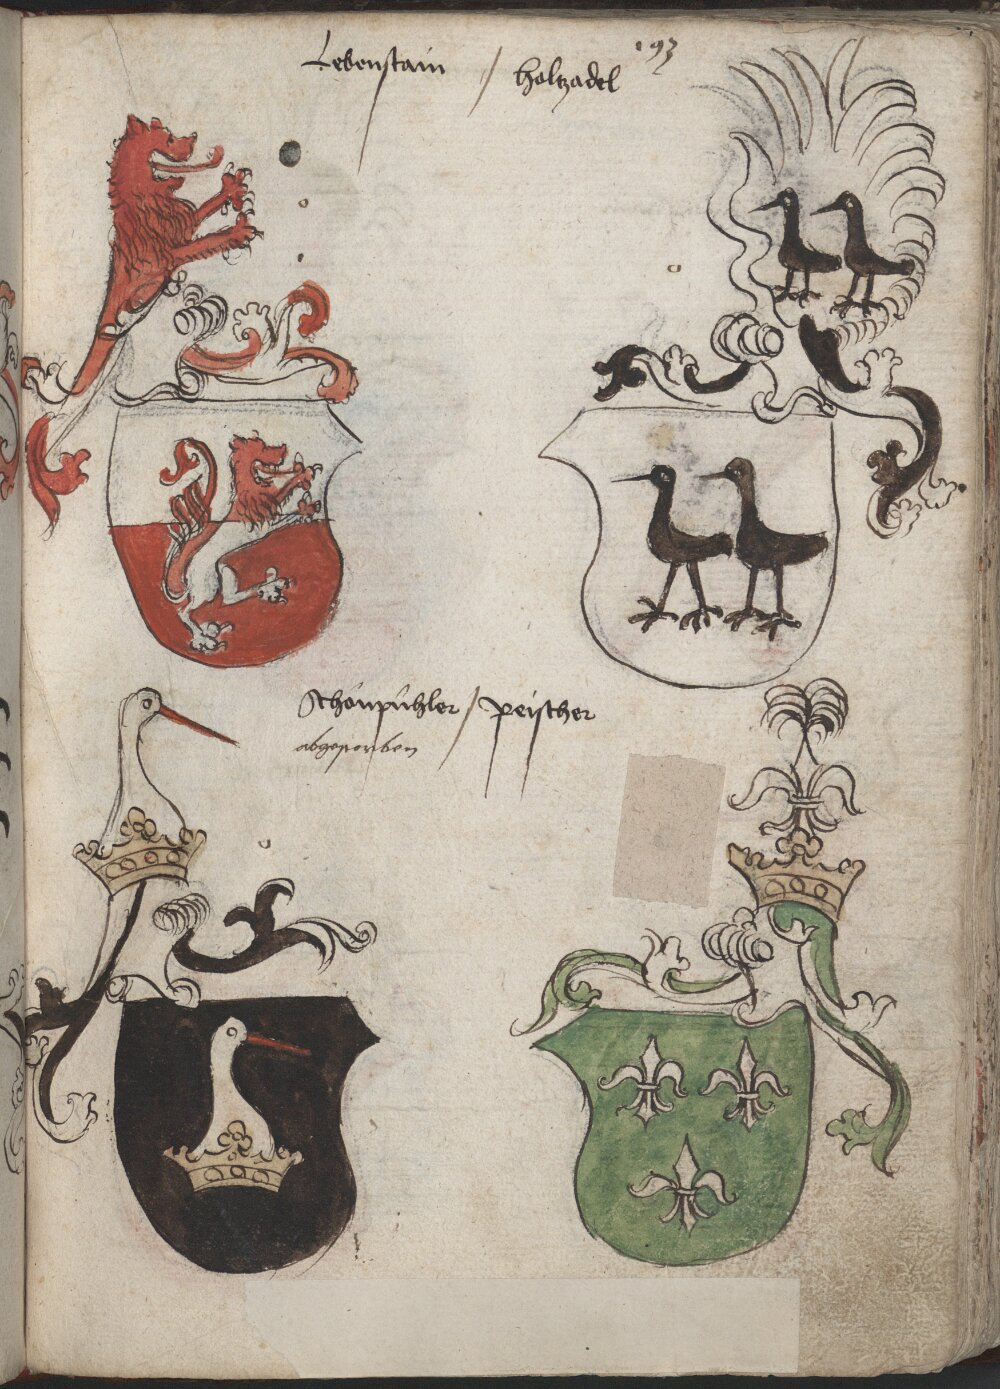 Lebenstain / holtzadel 193
Schönpühler / peischer
abgestorben